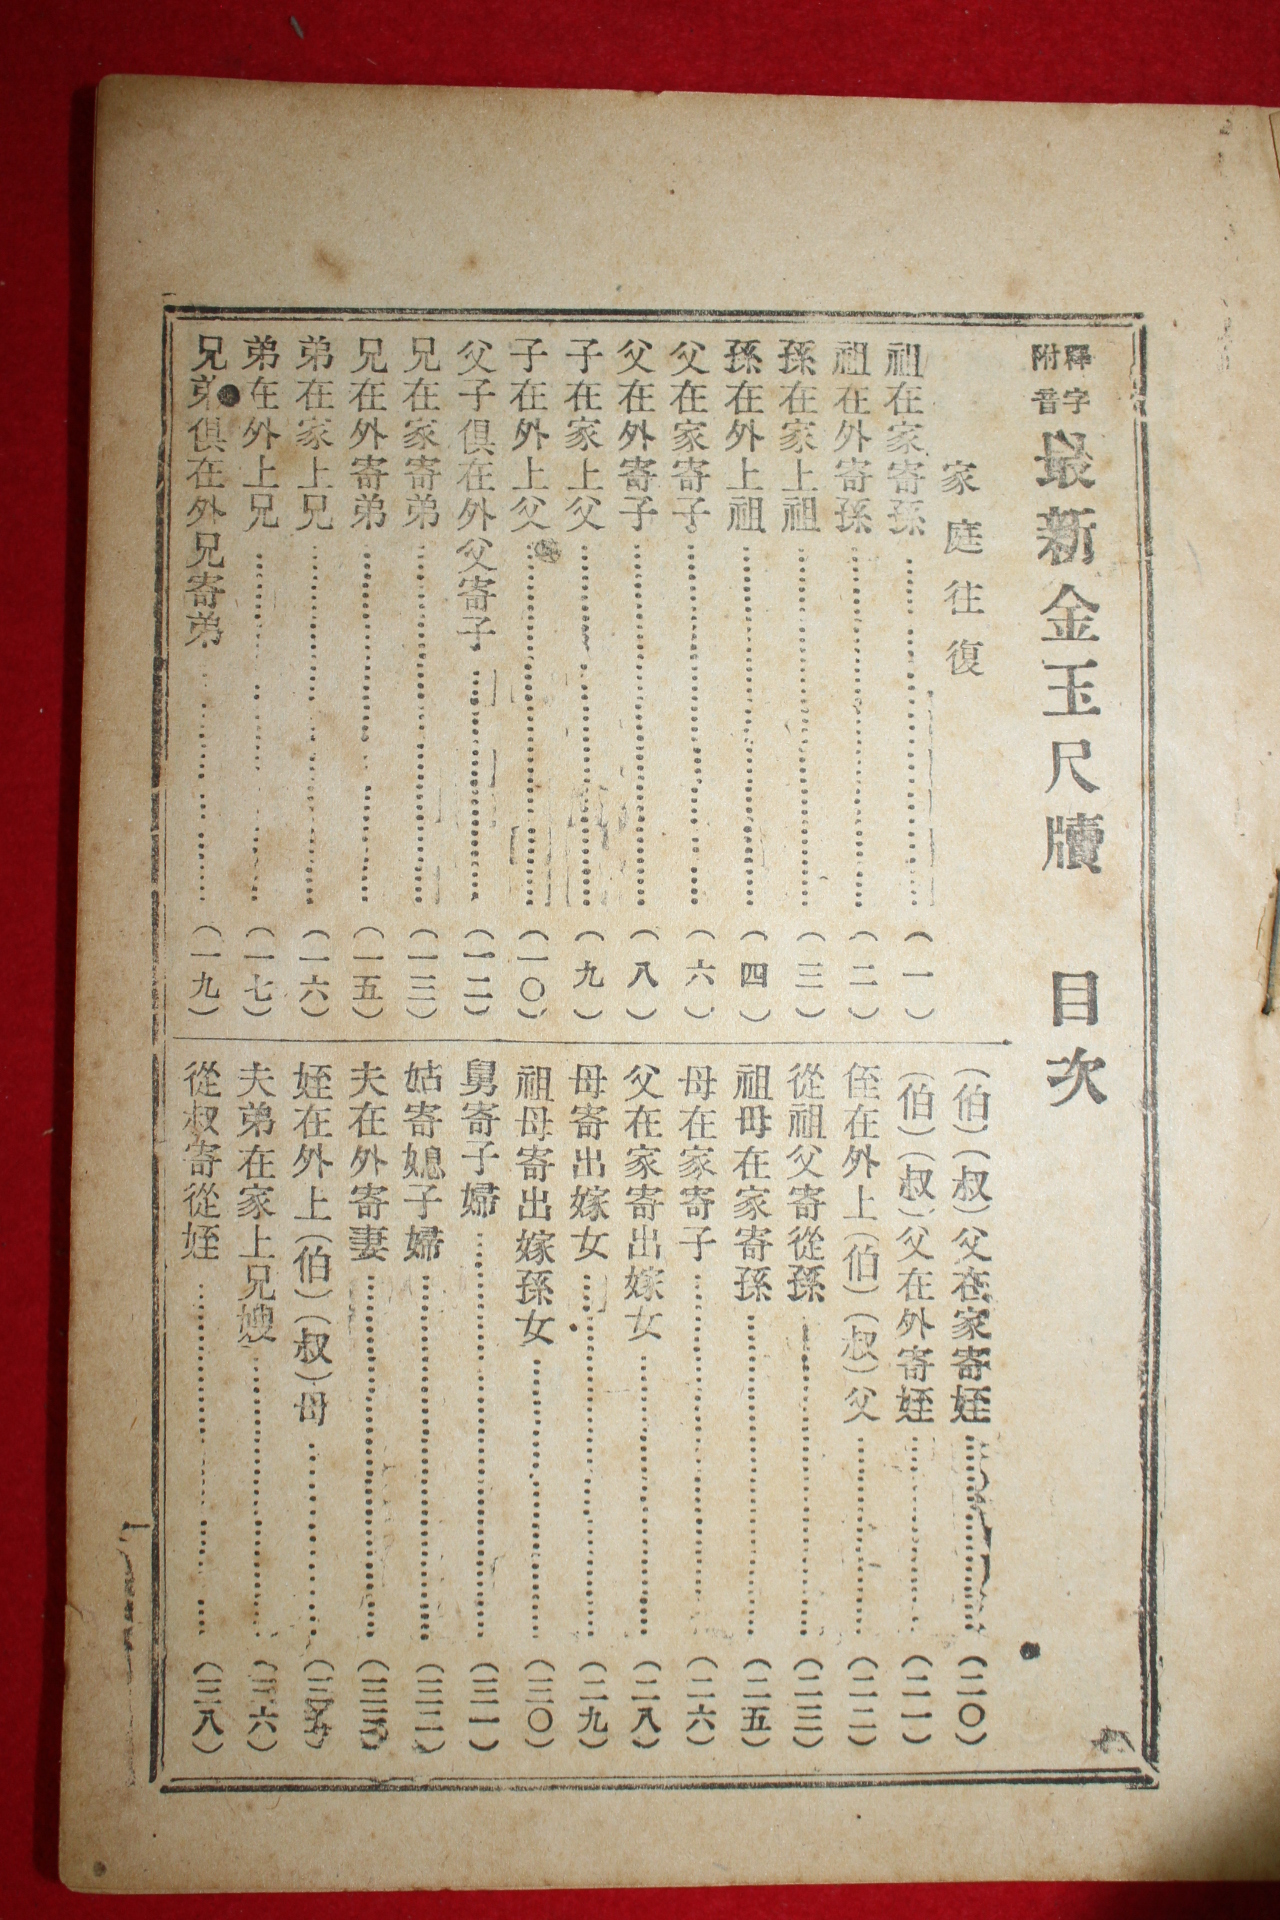 釋字附音 最新金玉尺牘 目次
家庭往復
祖在家寄孫………(一)
祖在外寄孫………(二)
孫在家上祖………(三)
孫在外上祖………(四)
父在家寄子………(六)
父在外寄子………(八)
子在家上父………(九)
子在外上父………(一〇)
父子俱在外父寄子………(一二)
兄在家寄弟………(一三)
兄在外寄弟………(一五)
弟在家上兄………(一六)
弟在外上兄………(一七)
兄弟俱在外兄寄弟………(一九)
(伯)(叔)父在家寄姪………(二〇)
(伯)(叔)父在外寄姪………(二一)
侄在外上(伯)(叔)父………(二二)
從祖父寄從孫………(二三)
祖母在家寄孫………(二五)
母在家寄子………(二六)
父在家寄出嫁女………(二八)
母寄出嫁女………(二九)
祖母寄出嫁孫女………(三〇)
舅寄子婦………(三一)
姑寄媳子婦………(三二)
夫在外寄妻………(三三)
姪在外上(伯)(叔)母………(三五)
夫弟在家上兄嫂………(三六)
從叔寄從姪………(三八)